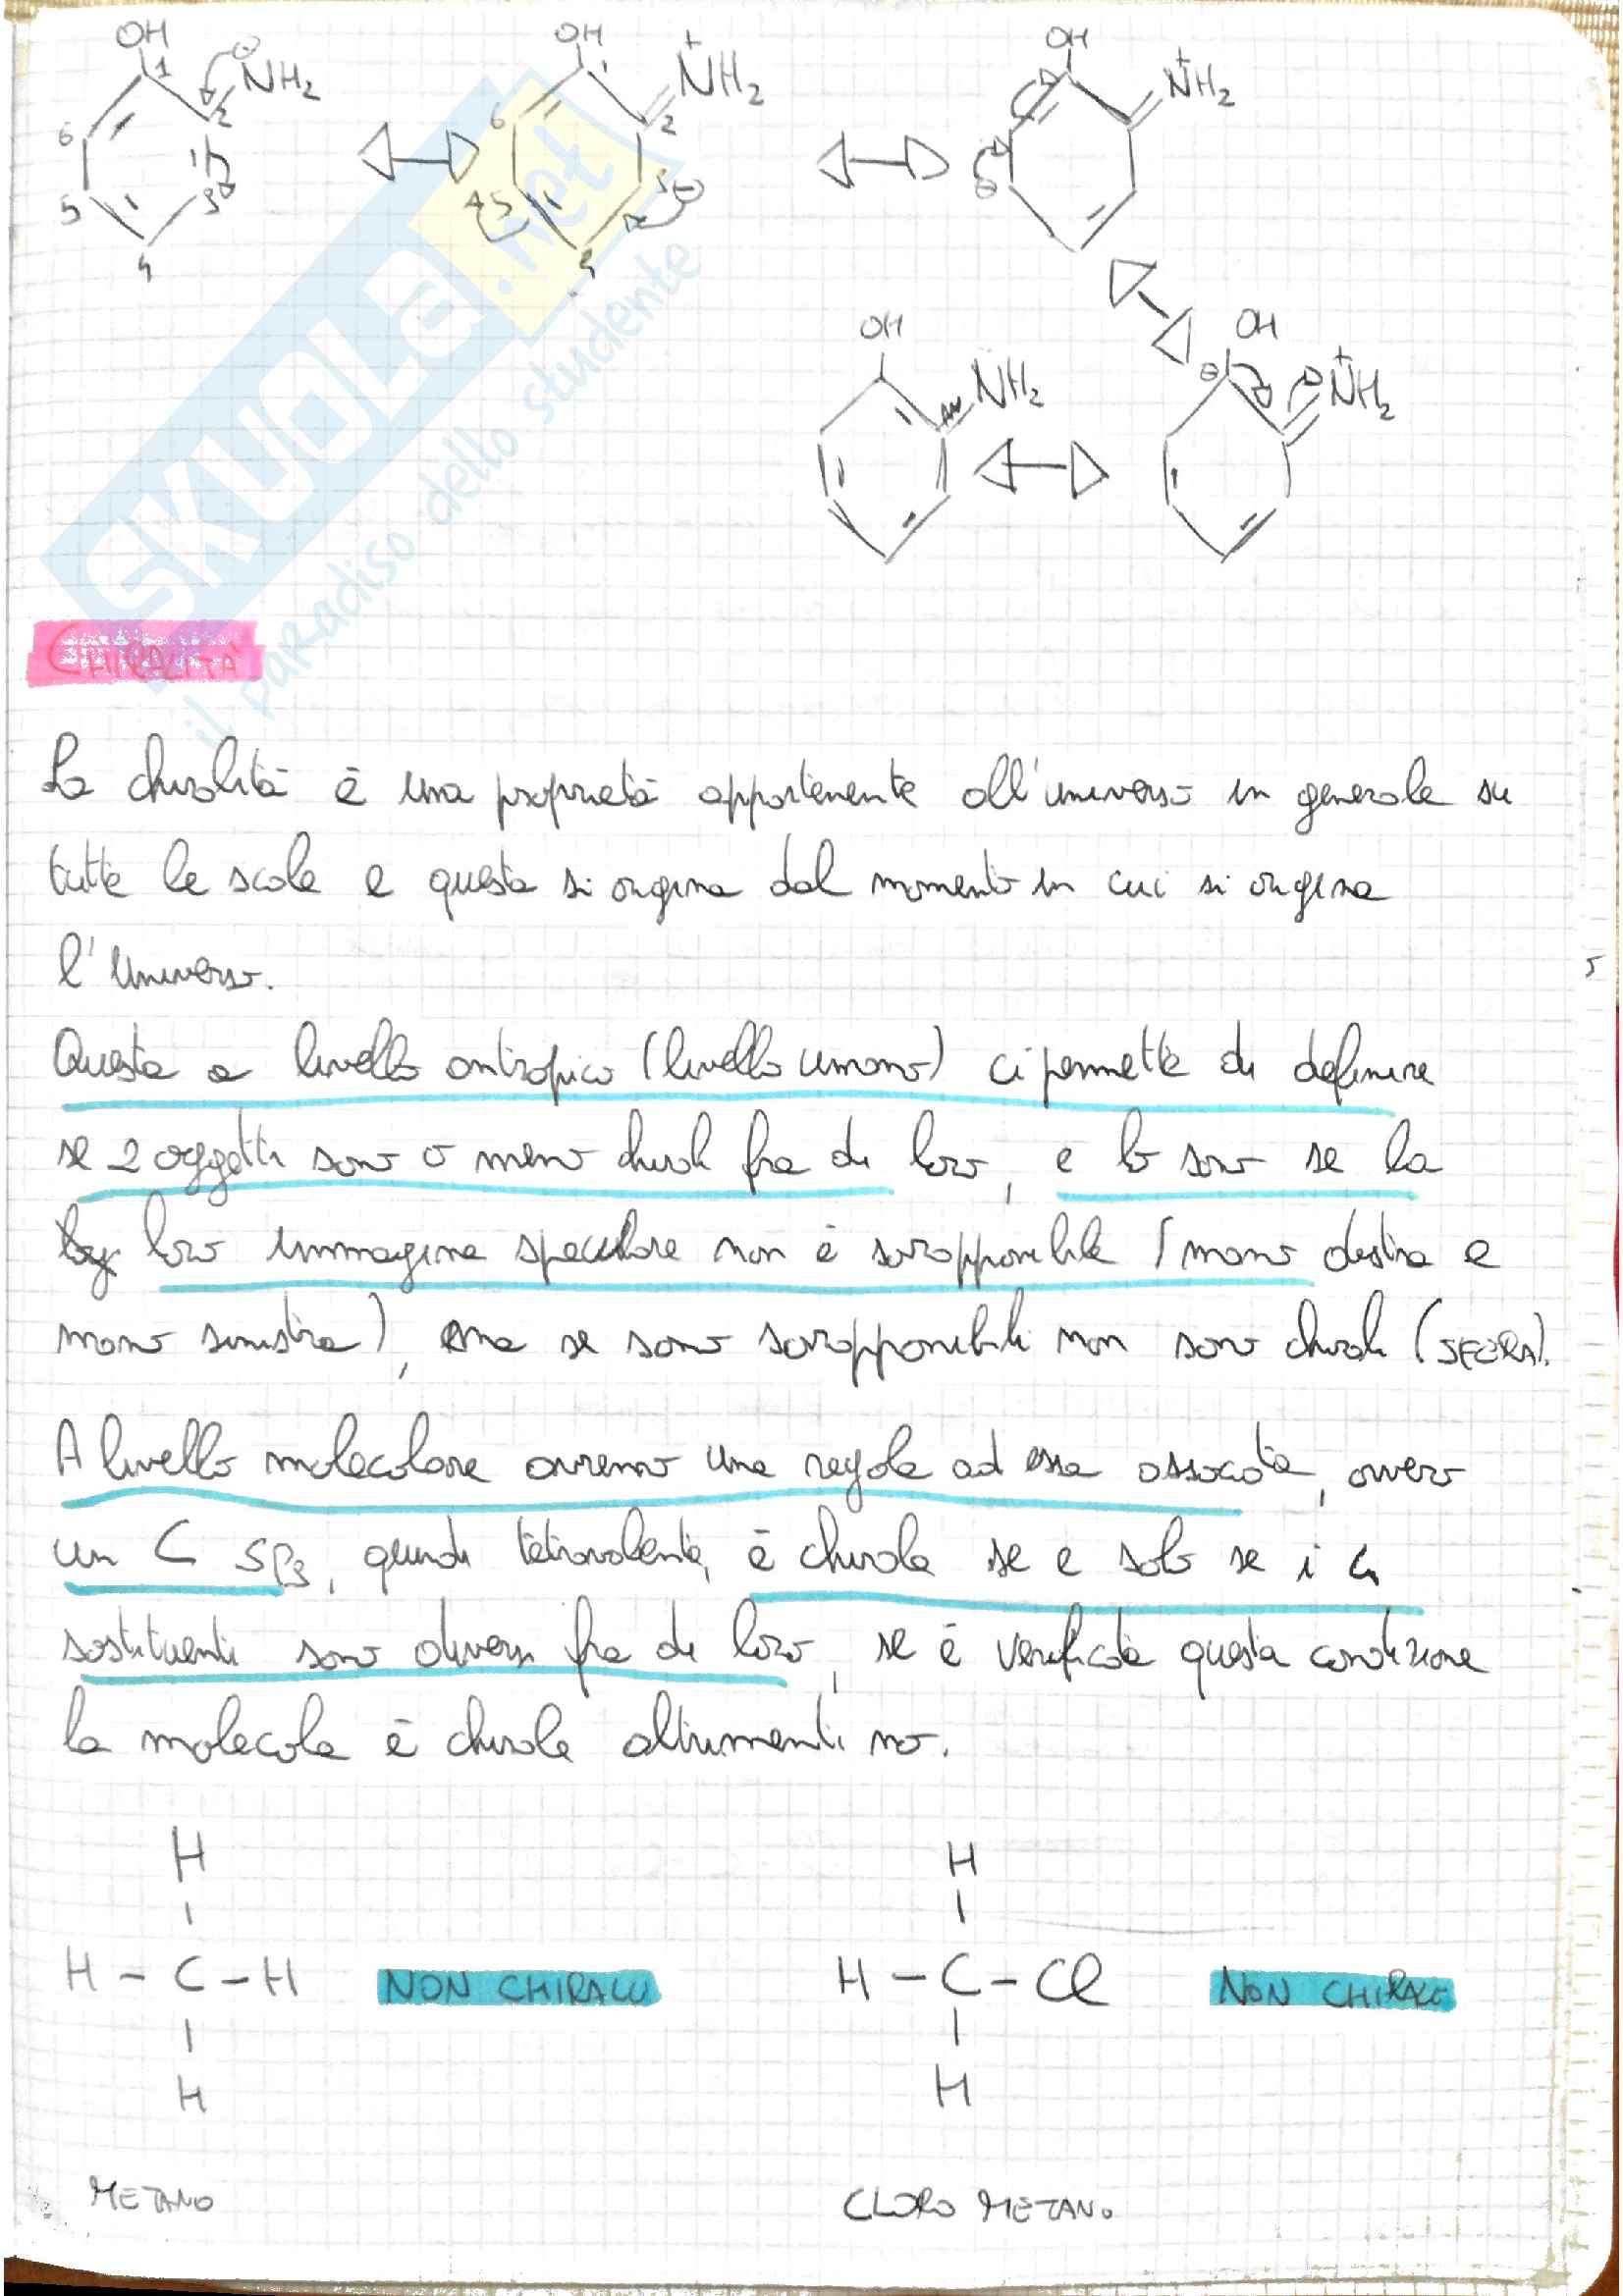 OH OH OH
1 NH2 + NH2 + NH2
6 2 6 2
5 3 5 3
4 4
OH OH
NH2 + NH2
SKUOLA.net
il paradiso dello studente
CHIRALITÀ
La chiralità è una proprietà appartenente all'universo in generale su
tutte le scale e questa si origina dal momento in cui si origina
l'Universo.
Questa a livello antropico (livello umano) ci permette di definire
se 2 oggetti sono o meno chirali fra di loro, e lo sono se la
loro immagine speculare non è sovrapponibile (mano destra e
mano sinistra), ma se sono sovrapponibili non sono chirali (SFERA).
A livello molecolare avremo una regola ad essa associata, ovvero
un C SP3, quindi tetravalente, è chirale se e solo se i 4
sostituenti sono diversi fra di loro, se è verificata questa condizione
la molecola è chirale altrimenti no.
H H
H - C - H NON CHIRALE H - C - Cl NON CHIRALE
H H
METANO CLORO METANO